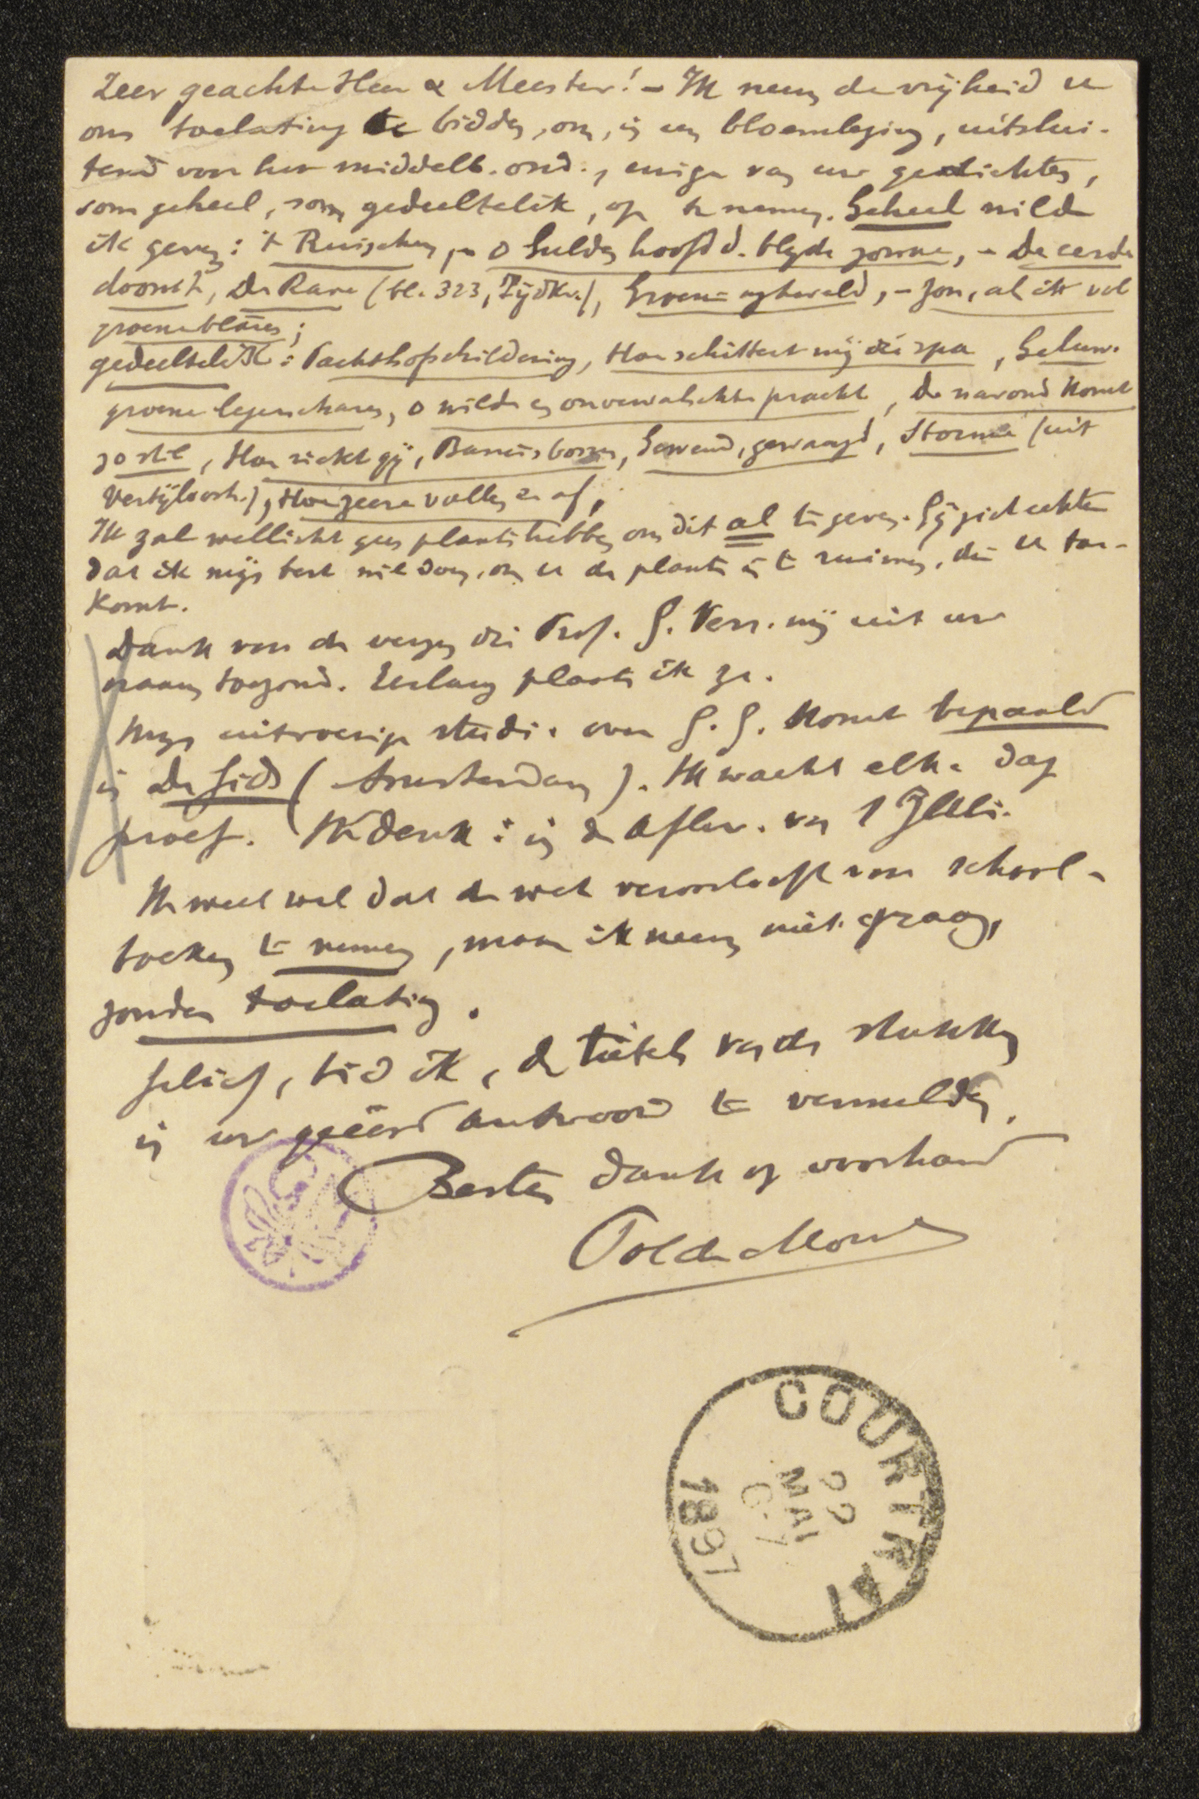 Zeer geachte Heer & Meester! – Ik neem de vrijheid u
om toelating te bidden, om, in een bloemlezing, uitslui-
tend voor het middelb. ond., enige van uw gedichten,
som geheel, som gedeeltelik, op te nemen. Geheel wilde
ik geven: 't Ruischen, – o Gulden hoofd d. blyde zonne, – De eerde
doomt, De Rave (bl. 323, Tijdkr.), Groeningheveld, – Zon, al ik vol
groene blaren;
gedeeltelik: Pachthofschildering, Hoe schittert mij die spa, Geluw-
groene legerscharen, o wilde en onvervalschte pracht, De navond komt
zo stil, Hoe ziekt gij, Baniersboom, Gewend, gewaagd, Storme (uit
Verzijloosh.), Hoe zeere vallen ze af;
Ik zal wellicht geen plaats hebben om dit al te geven. Gij ziet echter
dat ik mijn best wil doen, om u de plaats in te ruimen, die u toe-
komt.
Dank voor de verzen die Prof. G. Verr. mij uit uw
naam toezond. Eerlang plaats ik ze.
Mijn uitvoerige studie over G. G. komt bepaald
in De Gids (Amsterdam). Ik wacht elke dag
proef. Ik denk: in de Aflev. van 1 Juli.
Ik weet wel dat de wet veroorlooft voor school-
boeken te nemen, maar ik neem niet graag,
zonder toelating.
Gelief, bid ik, de titels van de stukken
in uw geëerd antwoord te vermelden.
Besten dank op voorhand
Pol de Mont
COURTRAI
22
MAI
6-7
1897